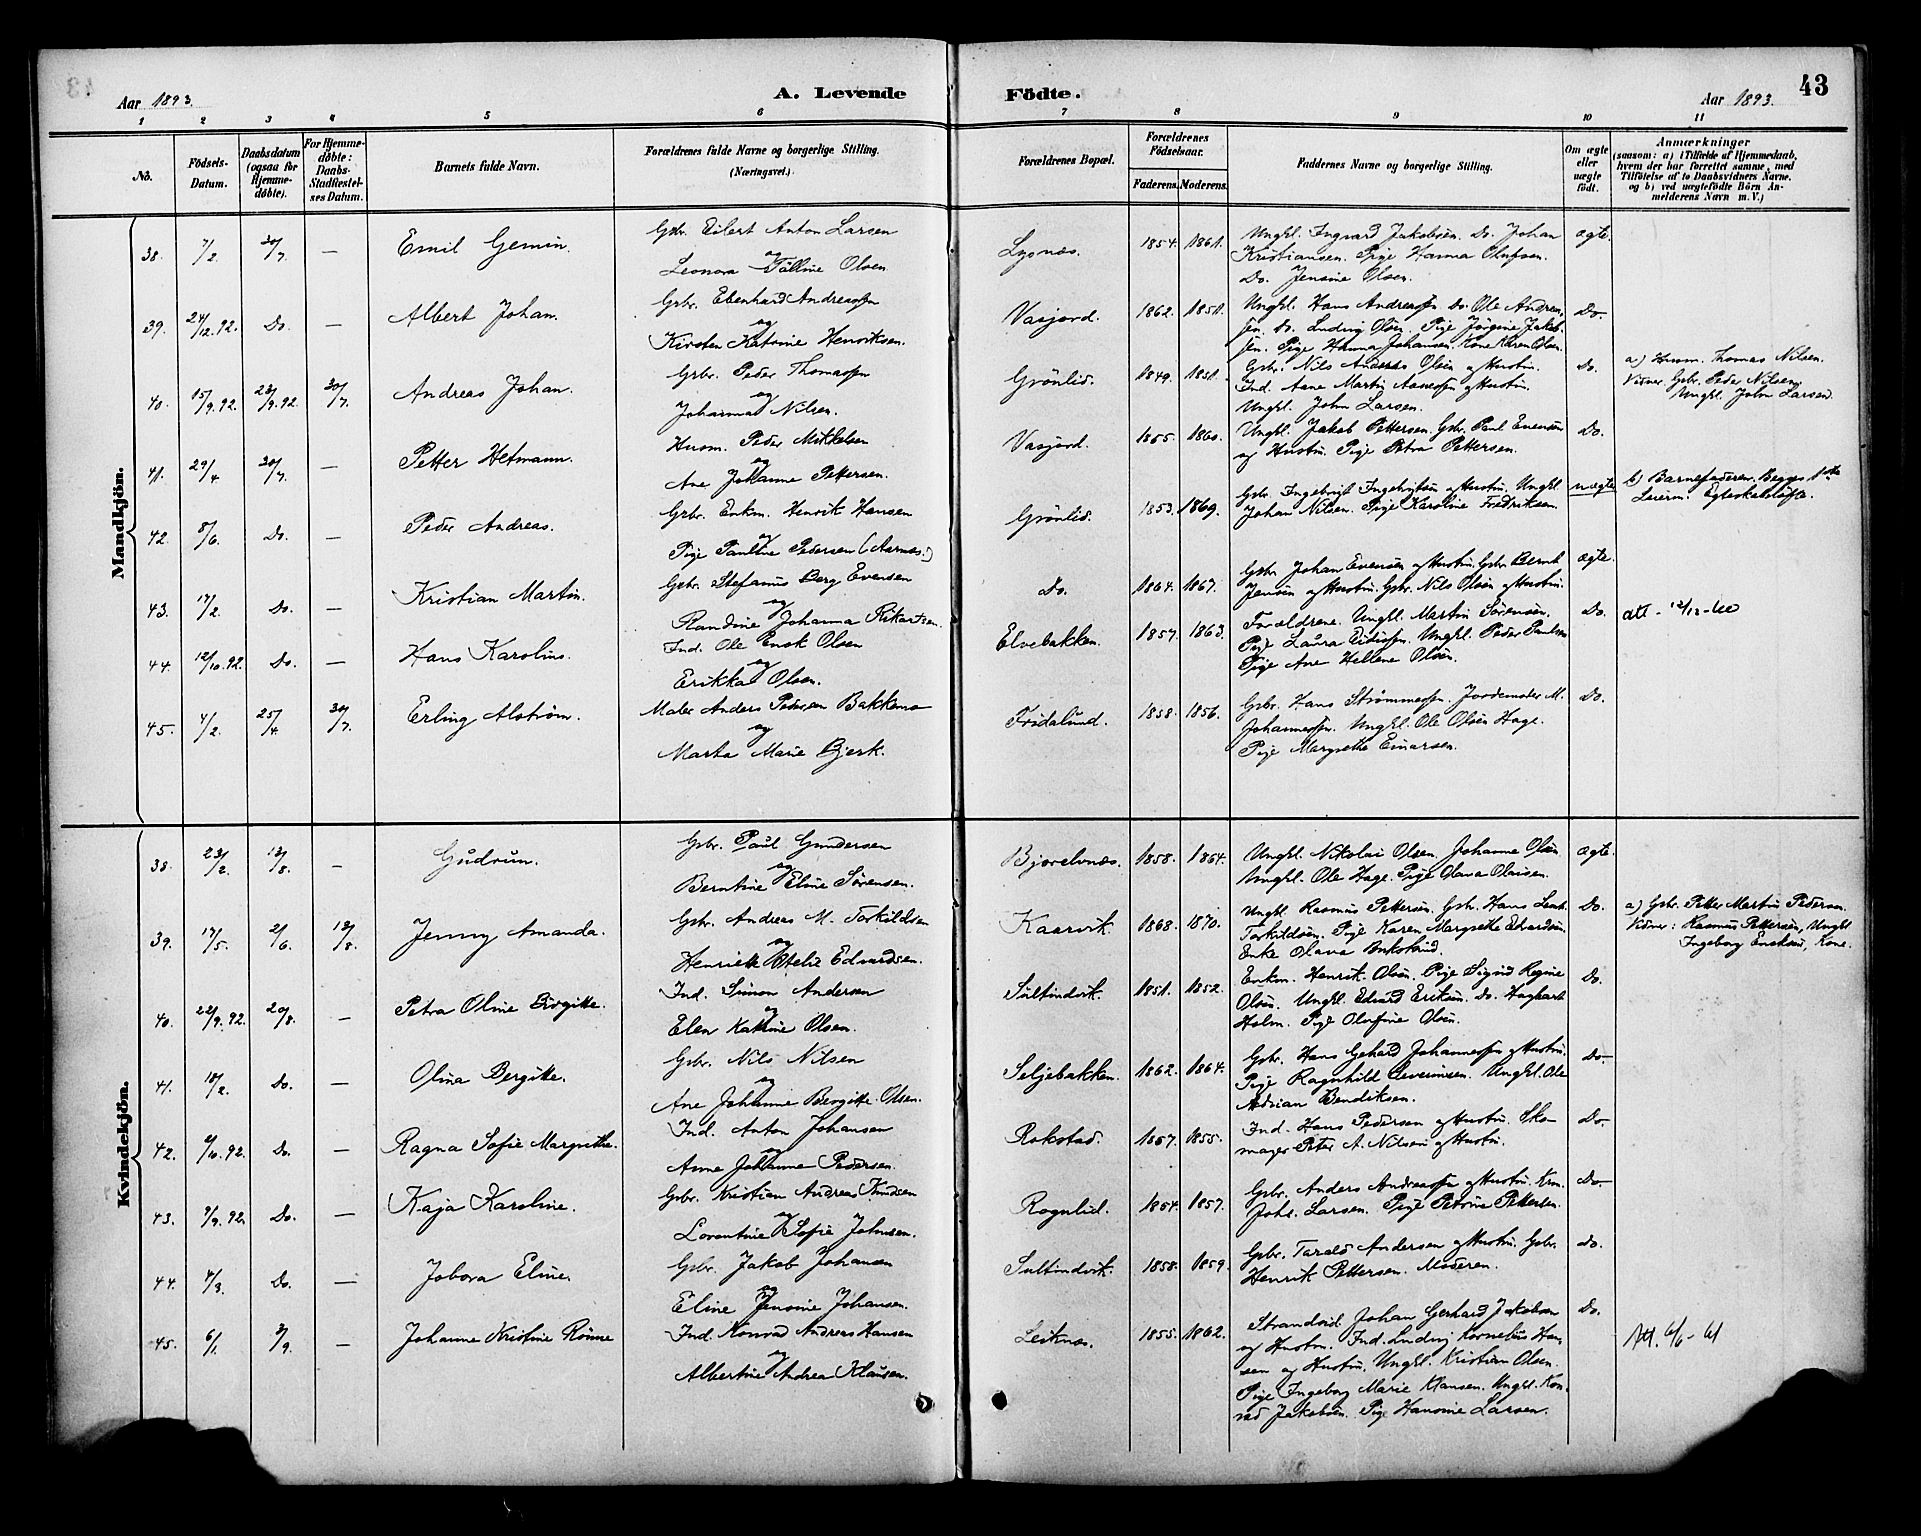 43
Aar 1893.
A. Levende
Födte.
Aar 1893.
1 2 3 4 5 6 7 8 9 10 11
No.
Födsels-Datum.
Daabsdatum (ogsaa for Hjemme-døbte).
For Hjemme-døbte: Daabs-Stadfæstel-ses Datum.
Barnets fulde Navn.
Forældrenes fulde Navne og borgerlige Stilling. (Næringsvei.)
Forældrenes Bopæl.
Forældrenes Födselsaar.
Faderens. Moderens.
Faddernes Navne og borgerlige Stilling.
Om ægte eller uægte födt.
Anmærkninger
(saasom: a) i Tilfælde af Hjemmedaab,
hvem der har forrettet samme, med
Tilföielse af to Daabsvidners Navne.
og b) ved uægtefödte Börn An-
melderens Navn m. V.)
Mandkjön.
38. 7/2. 30/7. — Emil Gemin. Gbr. Eilert Anton Larsen
og
Leonora Talline Olsen
Lysnæs. 1854. 1861. Ungkl. Ingvard Jakobsen. Do. Johan
Kristiansen. Pige Hanna Olufsen.
Do. Jensine Olsen.
ægte.
39. 24/12.92. Do. — Albert Johan. Gbr. Ebenhard Andreassen
og
Kirsten Katrine Henriksen.
Vasjord. 1862. 1851. Ungkl. Hans Andreassen Do. Ole Andreas-
sen. Do. Ludvig Olsen. Pige Jörgine Jakob-
sen. Pige Hanna Johansen. Kone Karen Olsen.
Do.
40. 15/9.92. 23/9.92. 30/7. Andreas Johan. Gbr. Peder Thomassen
og
Johanna Nilsen.
Grönlid. 1849. 1851. Gbr. Nils Anders Olsen og Hustru.
Ind. Ane Martin Aanessen og Hustru.
Ungkl. John Larsen.
Do.
a) Husm. Thomas Nilsen.
Vidner. Gbr. Peder Nilsen,
Ungkl. John Larsen.
41. 29/4. 30/7. — Petter Hetmann. Husm. Peder Mikkelsen
og
Ane Johanne Pettersen.
Vasjord. 1855. 1860. Ungkl. Jakob Pettersen. Gbr. Paul Evensen
og Hustru. Pige Petra Pettersen.
Do.
42. 5/6. Do. — Peder Andreas. Gbr. Enkm. Henrik Hansen
og
Pige Pauline Pedersen (Aarnæs.)
Grönlid. 1853. 1869. Gbr. Ingebrigt Ingebrigtsen og Hustru. Ungkl.
Johan Nilsen. Pige Karoline Fredriksen.
uægte
b) Barnefaderen. Begges 1ste
Leierm. Egteskabslöfte.
43. 17/2. Do. — Kristian Martin. Gbr. Stefanus Berg Evensen
og
Randine Johanna Rikartsen.
Do. 1864. 1867. Gbr. Johan Evensen og Hustru. Gbr. Bernt
Jensen og Hustru. Gbr. Nils Olsen og Hustru.
ægte.
44. 12/10.92. Do. — Hans Karolius. Ind. Ole Enok Olsen
og
Erikka Olsen.
Elvebakken. 1857. 1863. Forældrene. Ungkl. Martin Sörensen.
Pige Laura Eidissen. Ungkl. Peder Paulsen
Pige Ane Hellene Olsen.
Do.
att - 12/12-40
45. 4/2. 25/4. 30/7. Erling Alström. Maler Anders Pedersen Bakkens
og
Marta Marie Bjerk.
Fridalund. 1858. 1856. Gbr. Hans Strömmessen. Jordemoder M.
Johannessen. Ungkl. Ole Olsen Hage.
Pige Margrethe Einarsen.
Do.
Kvindekjön.
38. 23/2. 13/8. — Gudrun. Gbr. Paul Gundersen
og
Berntine Eline Sörensen.
Bjorelvnæs. 1858. 1864. Ungkl. Nikolai Olsen. Johanne Olsen
Ungkl. Ole Hage. Pige Olava Olaisen.
ægte.
39. 17/5. 2/6. 13/8. Jenny Amanda. Gbr. Andreas M. Torkildsen
og
Henriette Ofelie Edvardsen.
Kaarvik. 1868. 1870. Ungkl. Rasmus Pettersen. Gbr. Hans Lenh.
Torkildsen. Pige Karen Margrethe Edvardsen.
Enke Olava
Do.
a) Gbr. Petter Martin Pedersen
Vidner: Rasmus Pettersen, Ungkl.
Ingeborg Kone.
40. 22/9.92. 20/8. — Petra Oline Birgitte. Ind. Simon Andersen
og
Elen Katrine Olsen.
Sultindvik. 1851. 1852. Enkm. Henrik Olsen. Pige Sigrid Regine
Olsen. Ungkl. Edvard Eriksen. Do. Hagbart
Holm. Pige Olufine Olsen.
Do.
41. 18/2. Do. — Olina Bergitte. Gbr. Nils Nilsen
og
Ane Johanne Bergitte Olsen.
Seljebakken. 1862. 1864. Gbr. Hans Gehard Johannessen og Hustru.
Pige Ragnhild Severinsen. Ungkl. Ole
Adrian Bendiksen.
Do.
42. 9/10.92. Do. — Ragna Sofie Margrethe. Ind. Anton Johansen
og
Anne Johanne Pedersen.
Rokstad. 1867. 1855. Ind. Hans Pedersen og Hustru. Sko-
mager Peter A. Nilsen og Hustru.
Do.
43. 9/9.92. Do. — Kaja Karoline. Gbr. Kristian Andreas Knudsen
og
Lorentine Sofie Johnsen.
Rognlid. 1854. 1857. Gbr. Anders Andreassen og Hustru. Krm.
Johs. Larsen. Pige Petrine Pettersen.
Do.
44. 4/3. Do. — Jobora Eline. Gbr. Jakob Johansen
og
Eline Jensine Johansen.
Sultindvik. 1858. 1859. Gbr. Tarald Andersen og Hustru. Gbr.
Henrik Pettersen. Moderen.
Do.
45. 6/1. 3/9. — Johanne Kristine Rönne Ind. Konrad Andreas Hansen
og
Albertine Andrea Klausen.
Leiknæs. 1855. 1862. Strandsid. Johan Gerhard Jakobsen
og Hustru. Ind. Ludvig Kornelius Han-
sen og Hustru. Ungkl. Kristian Olsen.
Pige Ingeborg Marie Klausen. Ungkl. Kon-
rad Jakobsen. Pige Hansine Larsen.
Do.
Att. 6/6-61